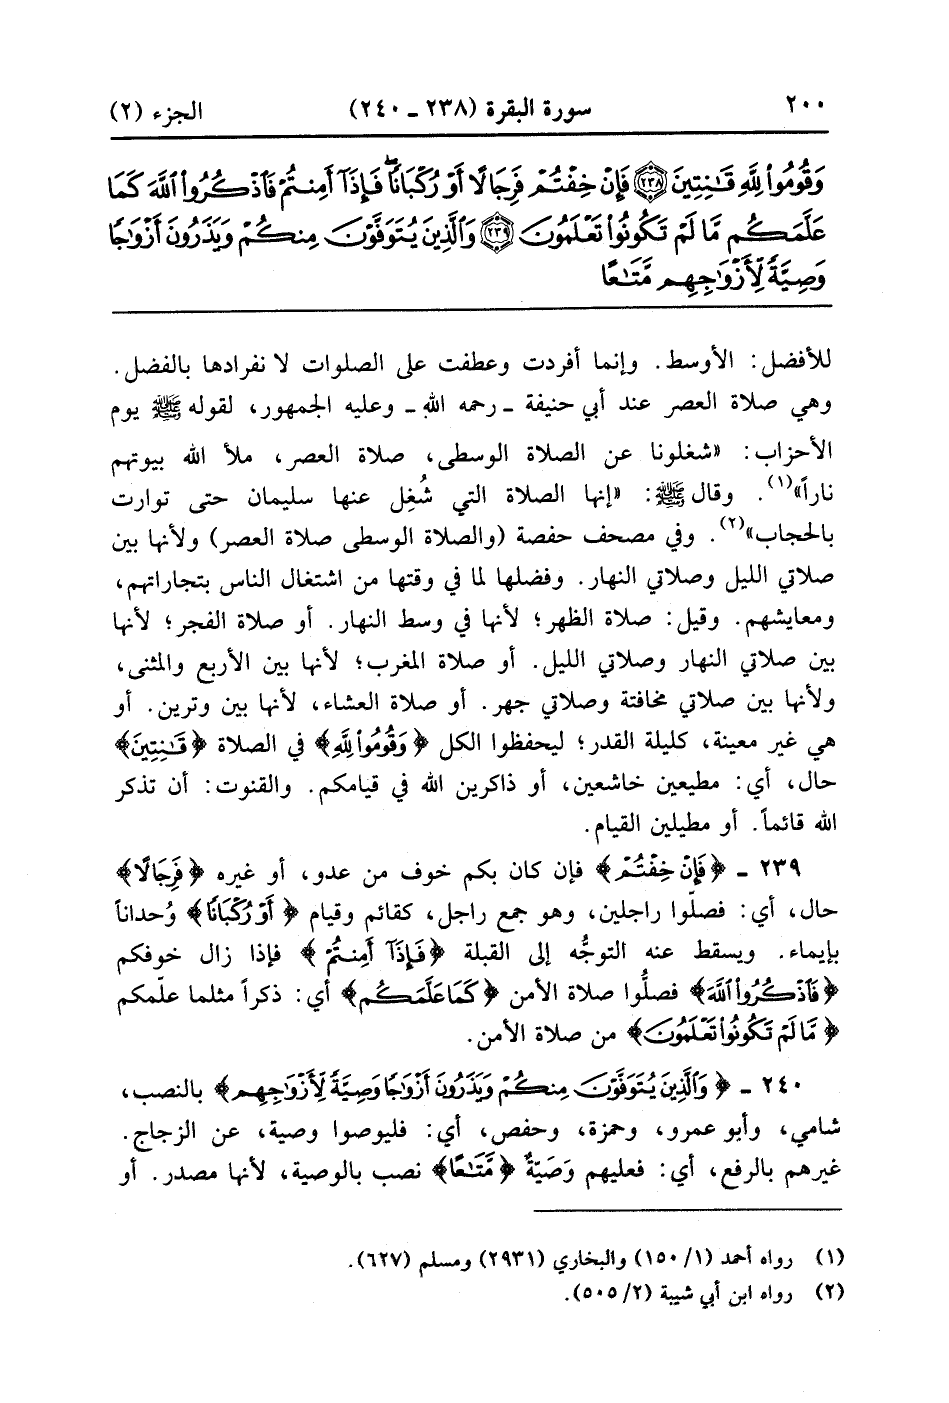 ٢٠٠ سورة البقرة (٢٣٨ - ٢٤٠) الجزء (٢)
وَقُومُوا۟ لِلَّهِ قَـٰنِتِينَ ﴿٢٣٨﴾ فَإِنْ خِفْتُمْ فَرِجَالًا أَوْ رُكْبَانًا ۖ فَإِذَآ أَمِنتُمْ فَٱذْكُرُوا۟ ٱللَّهَ كَمَا
عَلَّمَكُم مَّا لَمْ تَكُونُوا۟ تَعْلَمُونَ ﴿٢٣٩﴾ وَٱلَّذِينَ يُتَوَفَّوْنَ مِنكُمْ وَيَذَرُونَ أَزْوَٰجًا
وَصِيَّةً لِّأَزْوَٰجِهِم مَّتَـٰعًا
للأفضل: الأوسط. وإنما أفردت وعطفت على الصلوات لا نفرادها بالفضل.
وهي صلاة العصر عند أبي حنيفة - رحمه الله - وعليه الجمهور، لقوله ﷺ يوم
الأحزاب: «شغلونا عن الصلاة الوسطى، صلاة العصر، ملأ الله بيوتهم
ناراً»(١). وقال ﷺ: «إنها الصلاة التي شُغِل عنها سليمان حتى توارت
بالحجاب»(٢). وفي مصحف حفصة (والصلاة الوسطى صلاة العصر) ولأنها بين
صلاتي الليل وصلاتي النهار. وفضلها لما في وقتها من اشتغال الناس بتجاراتهم،
ومعايشهم. وقيل: صلاة الظهر؛ لأنها في وسط النهار. أو صلاة الفجر؛ لأنها
بين صلاتي النهار وصلاتي الليل. أو صلاة المغرب؛ لأنها بين الأربع والمثنى،
ولأنها بين صلاتي مخافتة وصلاتي جهر. أو صلاة العشاء، لأنها بين وترين. أو
هي غير معينة، كليلة القدر؛ ليحفظوا الكل ﴿وَقُومُوا۟ لِلَّهِ﴾ في الصلاة ﴿قَـٰنِتِينَ﴾
حال، أي: مطيعين خاشعين، أو ذاكرين الله في قيامكم. والقنوت: أن تذكر
الله قائماً. أو مطيلين القيام.
٢٣٩ - ﴿فَإِنْ خِفْتُمْ﴾ فإن كان بكم خوف من عدو، أو غيره ﴿فَرِجَالًا﴾
حال، أي: فصلّوا راجلين، وهو جمع راجل، كقائم وقيام ﴿أَوْ رُكْبَانًا﴾ وُحداناً
بإيماء. ويسقط عنه التوجُّه إلى القبلة ﴿فَإِذَآ أَمِنتُمْ﴾ فإذا زال خوفكم
﴿فَٱذْكُرُوا۟ ٱللَّهَ﴾ فصلُّوا صلاة الأمن ﴿كَمَا عَلَّمَكُم﴾ أي: ذكراً مثلما علّمكم
﴿مَّا لَمْ تَكُونُوا۟ تَعْلَمُونَ﴾ من صلاة الأمن.
٢٤٠ - ﴿وَٱلَّذِينَ يُتَوَفَّوْنَ مِنكُمْ وَيَذَرُونَ أَزْوَٰجًا وَصِيَّةً لِّأَزْوَٰجِهِم﴾ بالنصب،
شامي، وأبو عمرو، وحمزة، وحفص، أي: فليوصوا وصية، عن الزجاج.
غيرهم بالرفع، أي: فعليهم وَصَيّةٌ ﴿مَّتَـٰعًا﴾ نصب بالوصية، لأنها مصدر. أو
(١) رواه أحمد (١/ ١٥٠) والبخاري (٢٩٣١) ومسلم (٦٢٧).
(٢) رواه ابن أبي شيبة (٢/ ٥٠٥).